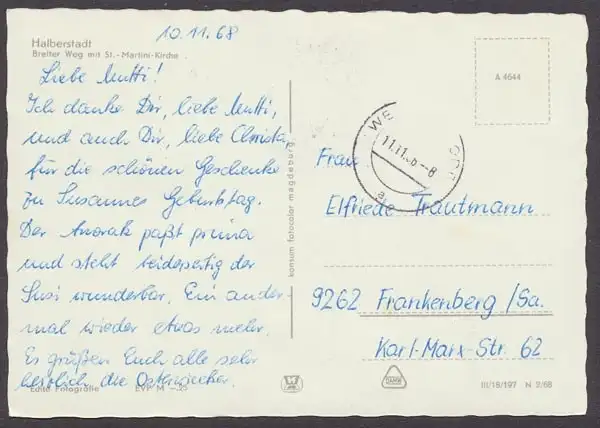 10.11.68
Halberstadt
Breiter Weg mit St.-Martini-Kirche
Liebe Mutti!
Ich danke Dir, liebe Mutti,
und auch Dir, liebe Christa,
für die schönen Geschenke
zu Susannes Geburtstag.
Der Anorak paßt prima
und steht beiderseitig der
Susi wunderbar. Ein ander-
mal wieder etwas mehr.
Es grüßen Euch alle sehr
herzlich die Osterwiecker.
Echte Fotografie EVP M -,25
konsum fotocolor magdeburg
A 4644
WE
ORF
11.11.6 -8
a
Frau
Elfriede Trautmann
9262 Frankenberg/Sa.
Karl-Marx-Str. 62
III/18/197 N 2/68